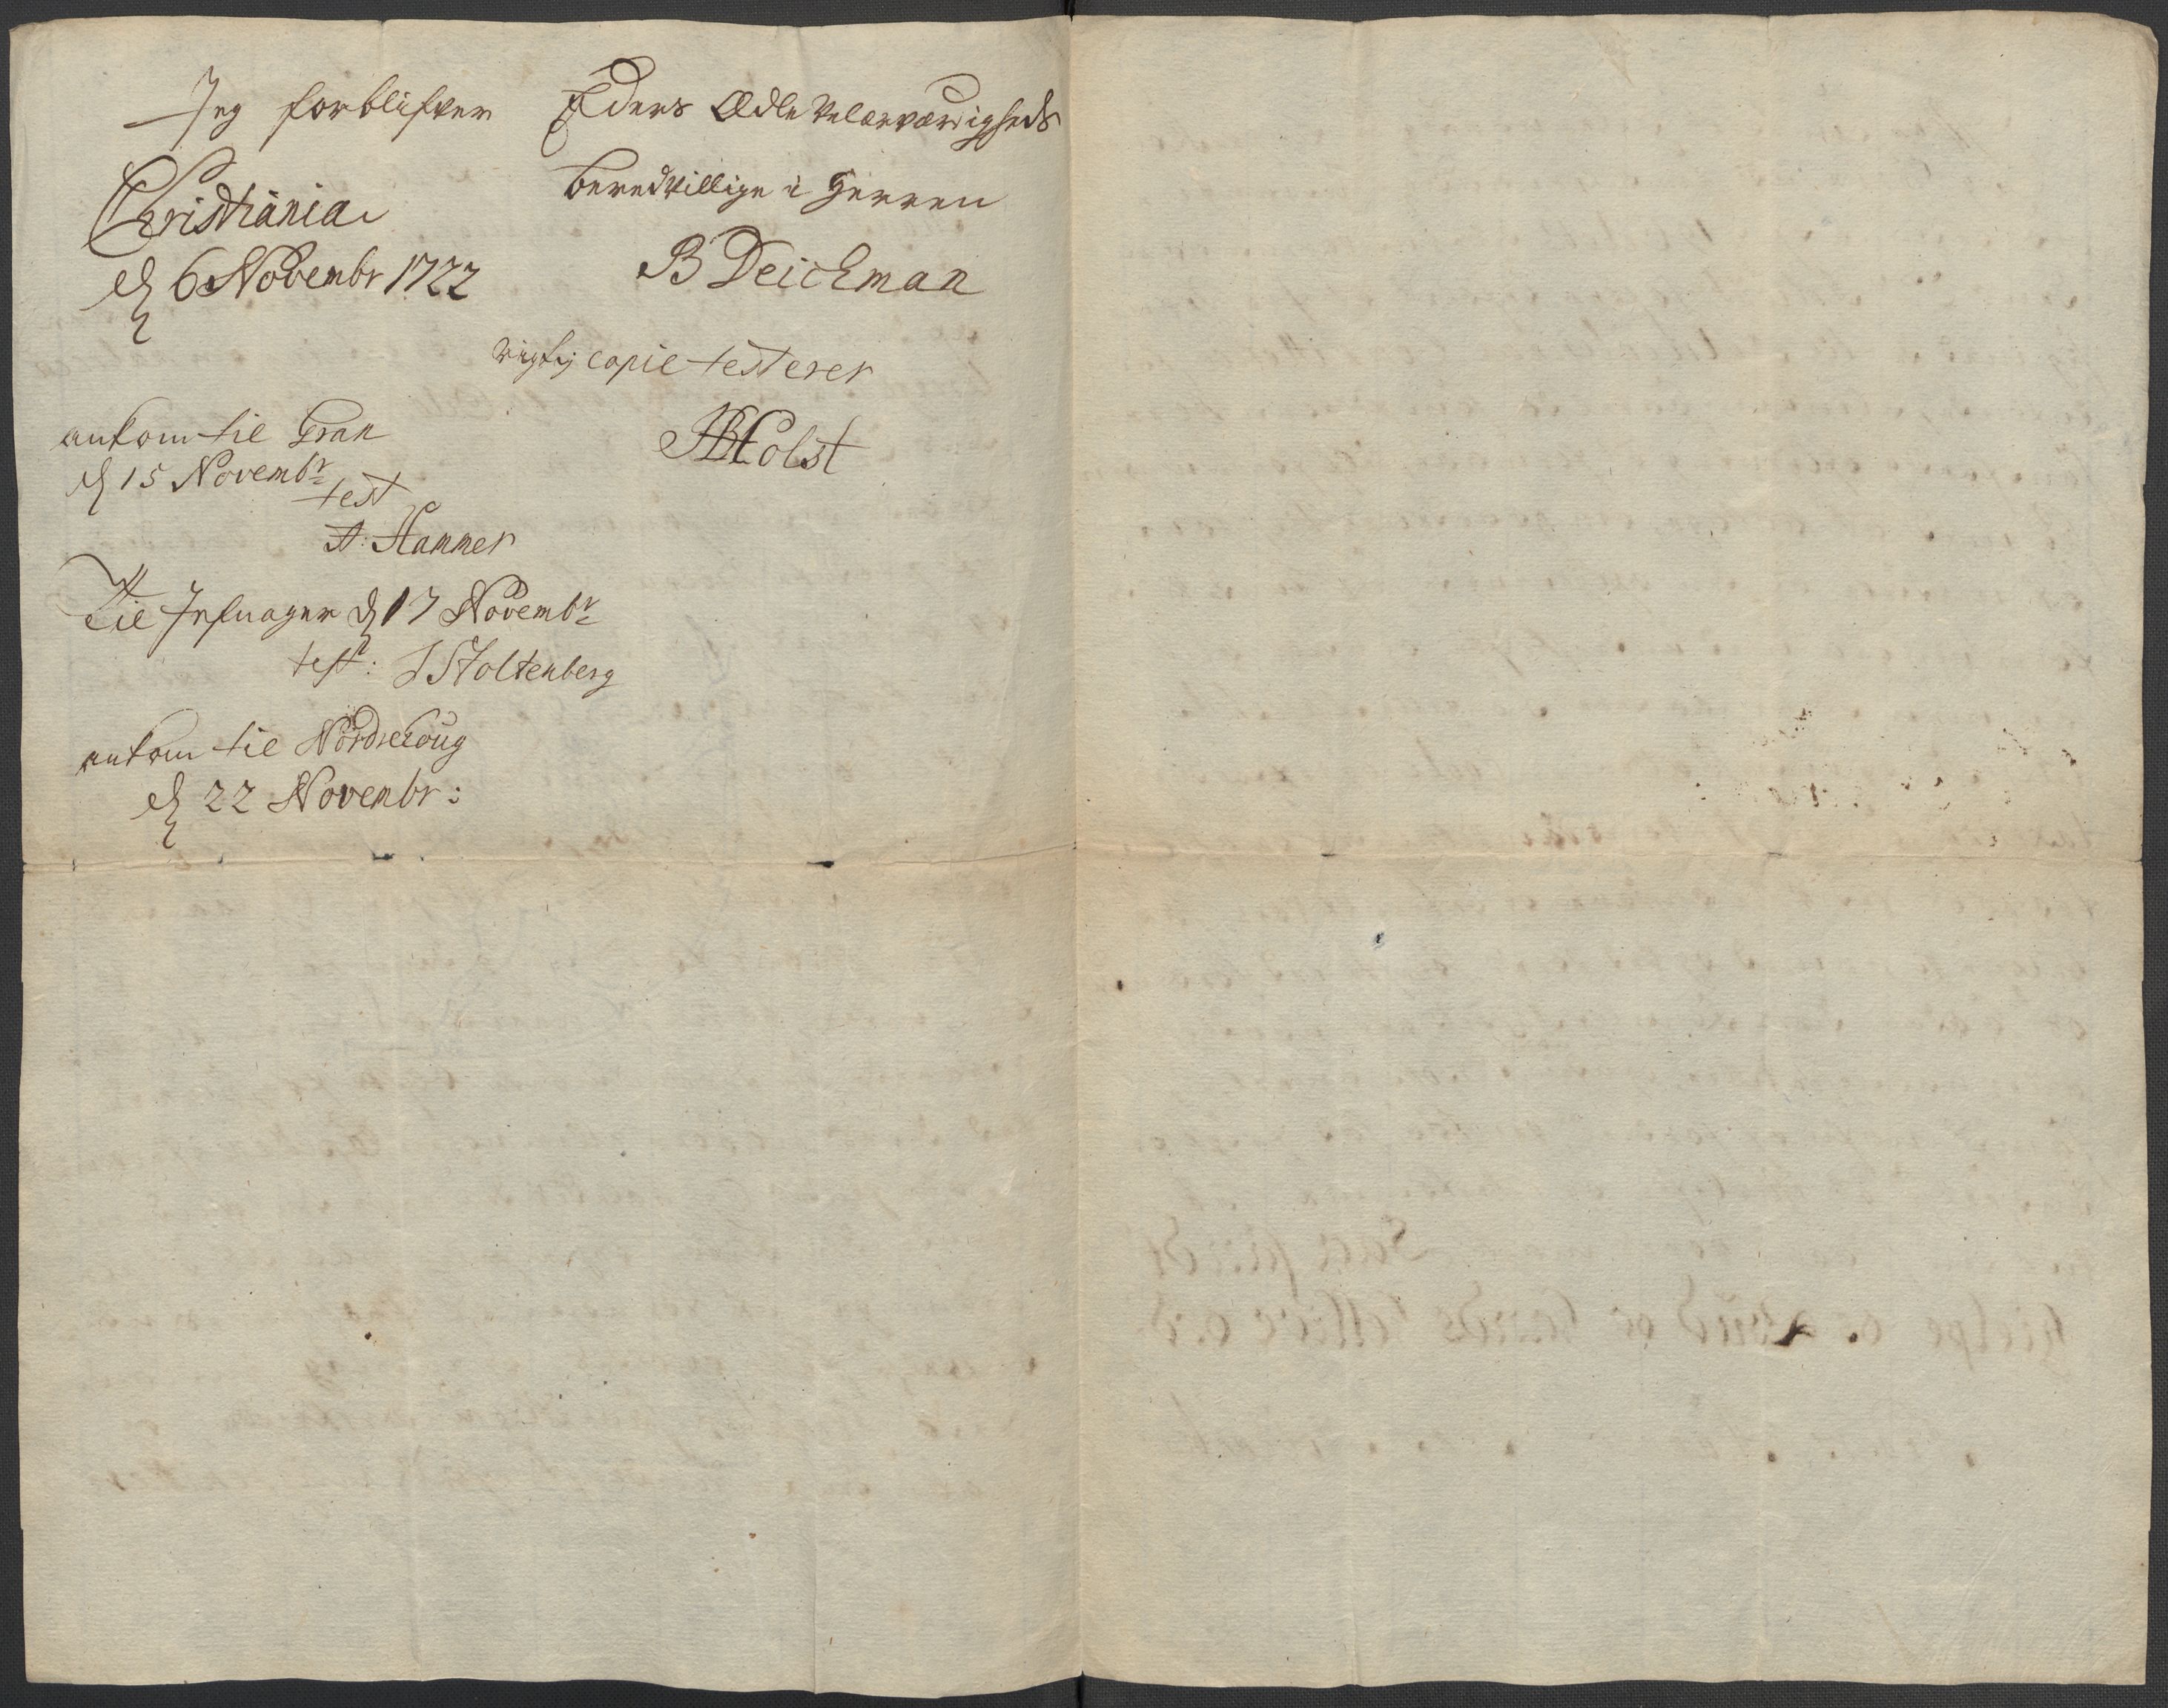 Jeg forblifver Eders Ædle Velærværdigheds
beredvillige i Herren
Christiania
d 6 Novembr 1722
B Deichman
rigtig copie testerer
JBHolst
ankom til Gran
d 15 Novembr
test
A: Hammer
Til Jefnager d 17 Novembr
test: J Stoltenberg
ankom til Nordrehoug
d 22 Novembr: